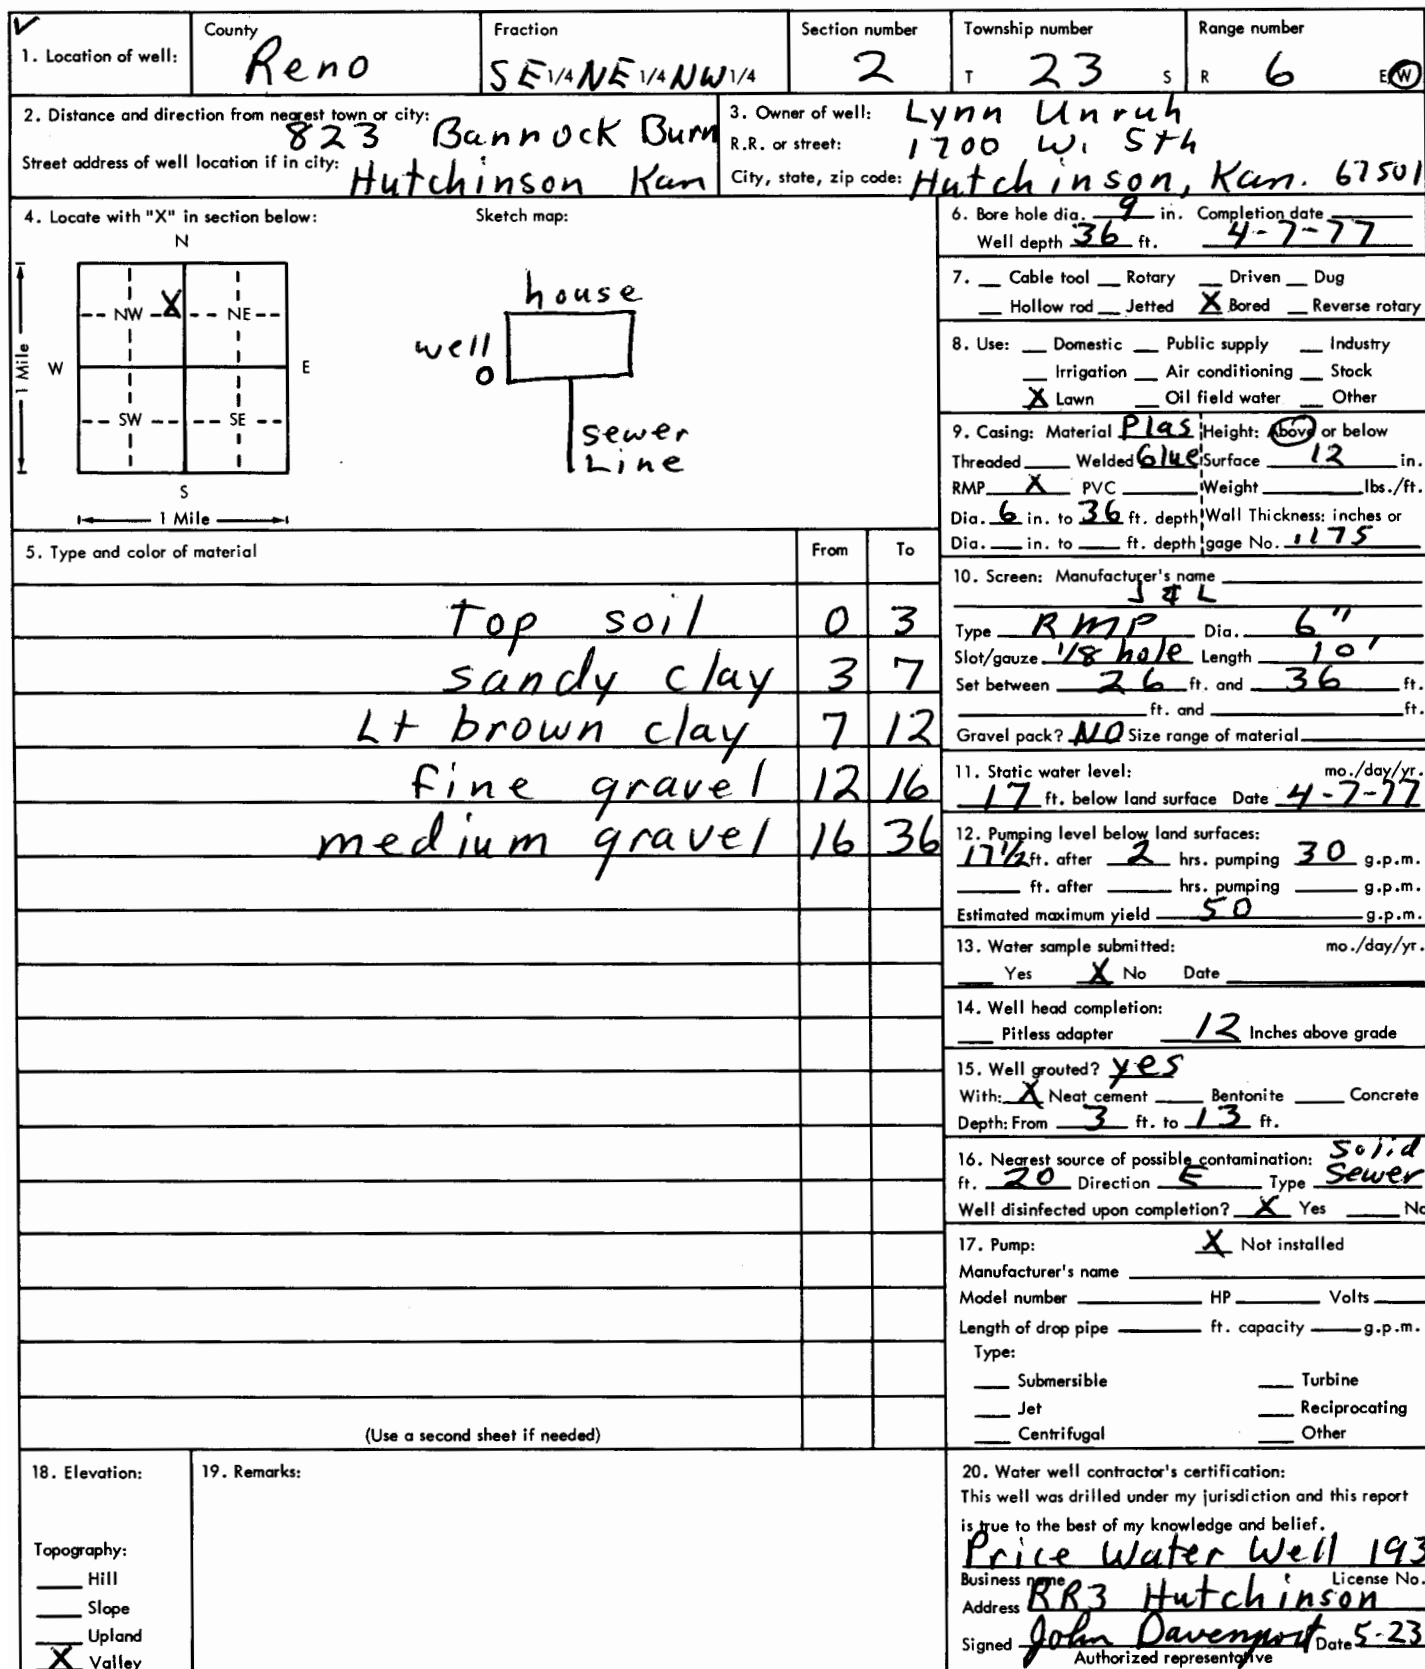 ✓
1. Location of well: County Reno Fraction SE 1/4 NE 1/4 NW 1/4 Section number 2 Township number T 23 S Range number R 6 E (W)
2. Distance and direction from nearest town or city: 823 Bannock Burn
Street address of well location if in city: Hutchinson Kan
3. Owner of well: Lynn Unruh
R.R. or street: 1700 W. 5th
City, state, zip code: Hutchinson, Kan. 67501
4. Locate with "X" in section below:
N
NW X NE
W E
SW SE
S
1 Mile
1 Mile
Sketch map:
house
well
O
sewer
Line
5. Type and color of material From To
Top soil 0 3
sandy clay 3 7
Lt brown clay 7 12
fine gravel 12 16
medium gravel 16 36
(Use a second sheet if needed)
6. Bore hole dia. 9 in. Completion date
Well depth 36 ft. 4-7-77
7. __ Cable tool __ Rotary __ Driven __ Dug
__ Hollow rod __ Jetted X Bored __ Reverse rotary
8. Use: __ Domestic __ Public supply __ Industry
__ Irrigation __ Air conditioning __ Stock
X Lawn __ Oil field water __ Other
9. Casing: Material Plas Height: Above or below
Threaded __ Welded Glue Surface 12 in.
RMP X PVC __ Weight __ lbs./ft.
Dia. 6 in. to 36 ft. depth Wall Thickness: inches or
Dia. __ in. to __ ft. depth gage No. .175
10. Screen: Manufacturer's name
J & L
Type RMP Dia. 6"
Slot/gauze 1/8 hole Length 10'
Set between 26 ft. and 36 ft.
__ ft. and __ ft.
Gravel pack? NO Size range of material
11. Static water level: mo./day/yr.
17 ft. below land surface Date 4-7-77
12. Pumping level below land surfaces:
17 1/2 ft. after 2 hrs. pumping 30 g.p.m.
__ ft. after __ hrs. pumping __ g.p.m.
Estimated maximum yield 50 g.p.m.
13. Water sample submitted: mo./day/yr.
__ Yes X No Date
14. Well head completion:
__ Pitless adapter 12 Inches above grade
15. Well grouted? yes
With: X Neat cement __ Bentonite __ Concrete
Depth: From 3 ft. to 13 ft.
16. Nearest source of possible contamination: Solid
ft. 20 Direction E Type Sewer
Well disinfected upon completion? X Yes __ No
17. Pump: X Not installed
Manufacturer's name
Model number __ HP __ Volts
Length of drop pipe __ ft. capacity __ g.p.m.
Type:
__ Submersible __ Turbine
__ Jet __ Reciprocating
__ Centrifugal __ Other
18. Elevation:
Topography:
__ Hill
__ Slope
__ Upland
X Valley
19. Remarks:
20. Water well contractor's certification:
This well was drilled under my jurisdiction and this report
is true to the best of my knowledge and belief.
Price Water Well 193
Business name License No.
Address RR3 Hutchinson
Signed John Davenport Date 5-23
Authorized representative